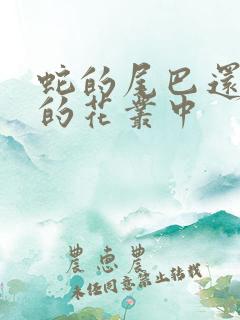 蛇的尾巴還
的花叢中
農惠農
未任同意禁止转载